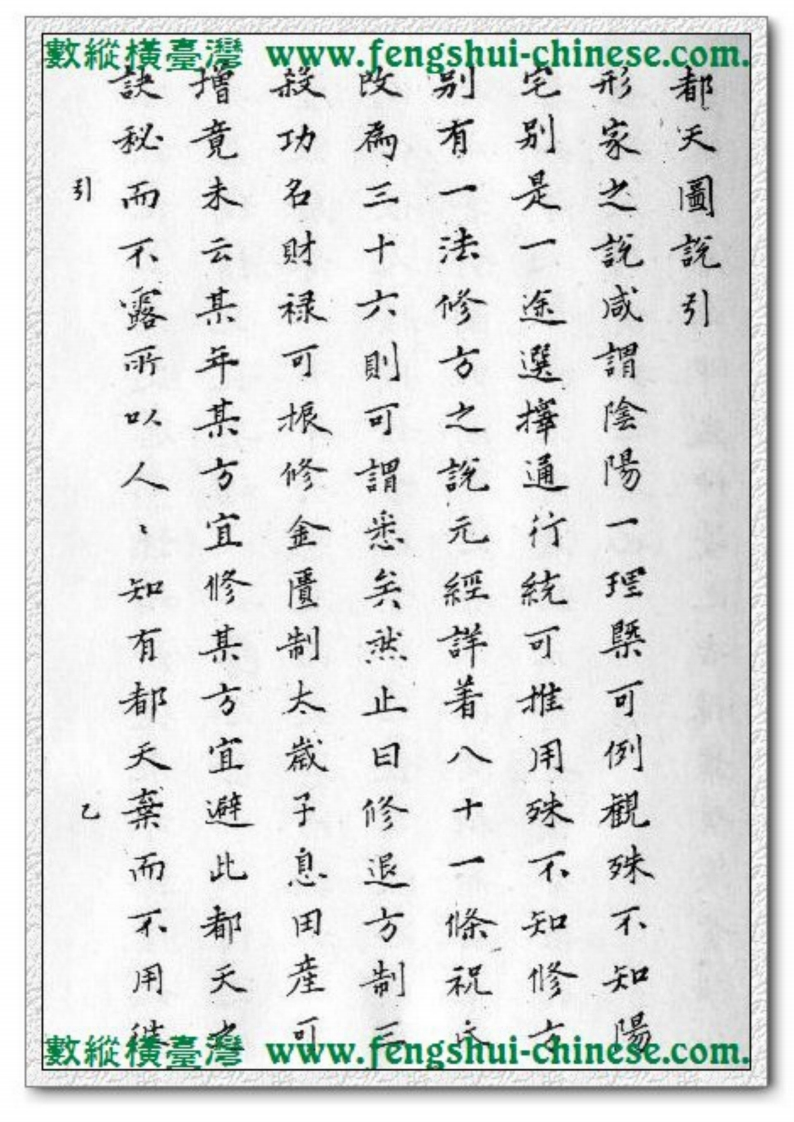 數縱橫臺灣 www.fengshui-chinese.com.
都天圖說引
形家之說咸謂陰陽一理槩可例觀殊不知陽
宅別是一途選擇通行統可推用殊不知修方
別有一法修方之說元經詳著八十一條祝氏
改為三十六則可謂悉矣然止曰修退方制三
殺功名財祿可振修金匱制太歲子息田產可
增竟未云某年某方宜修某方宜避此都天
訣秘而不露所以人〻知有都天棄而不用
引
乙
數縱橫臺灣 www.fengshui-chinese.com.